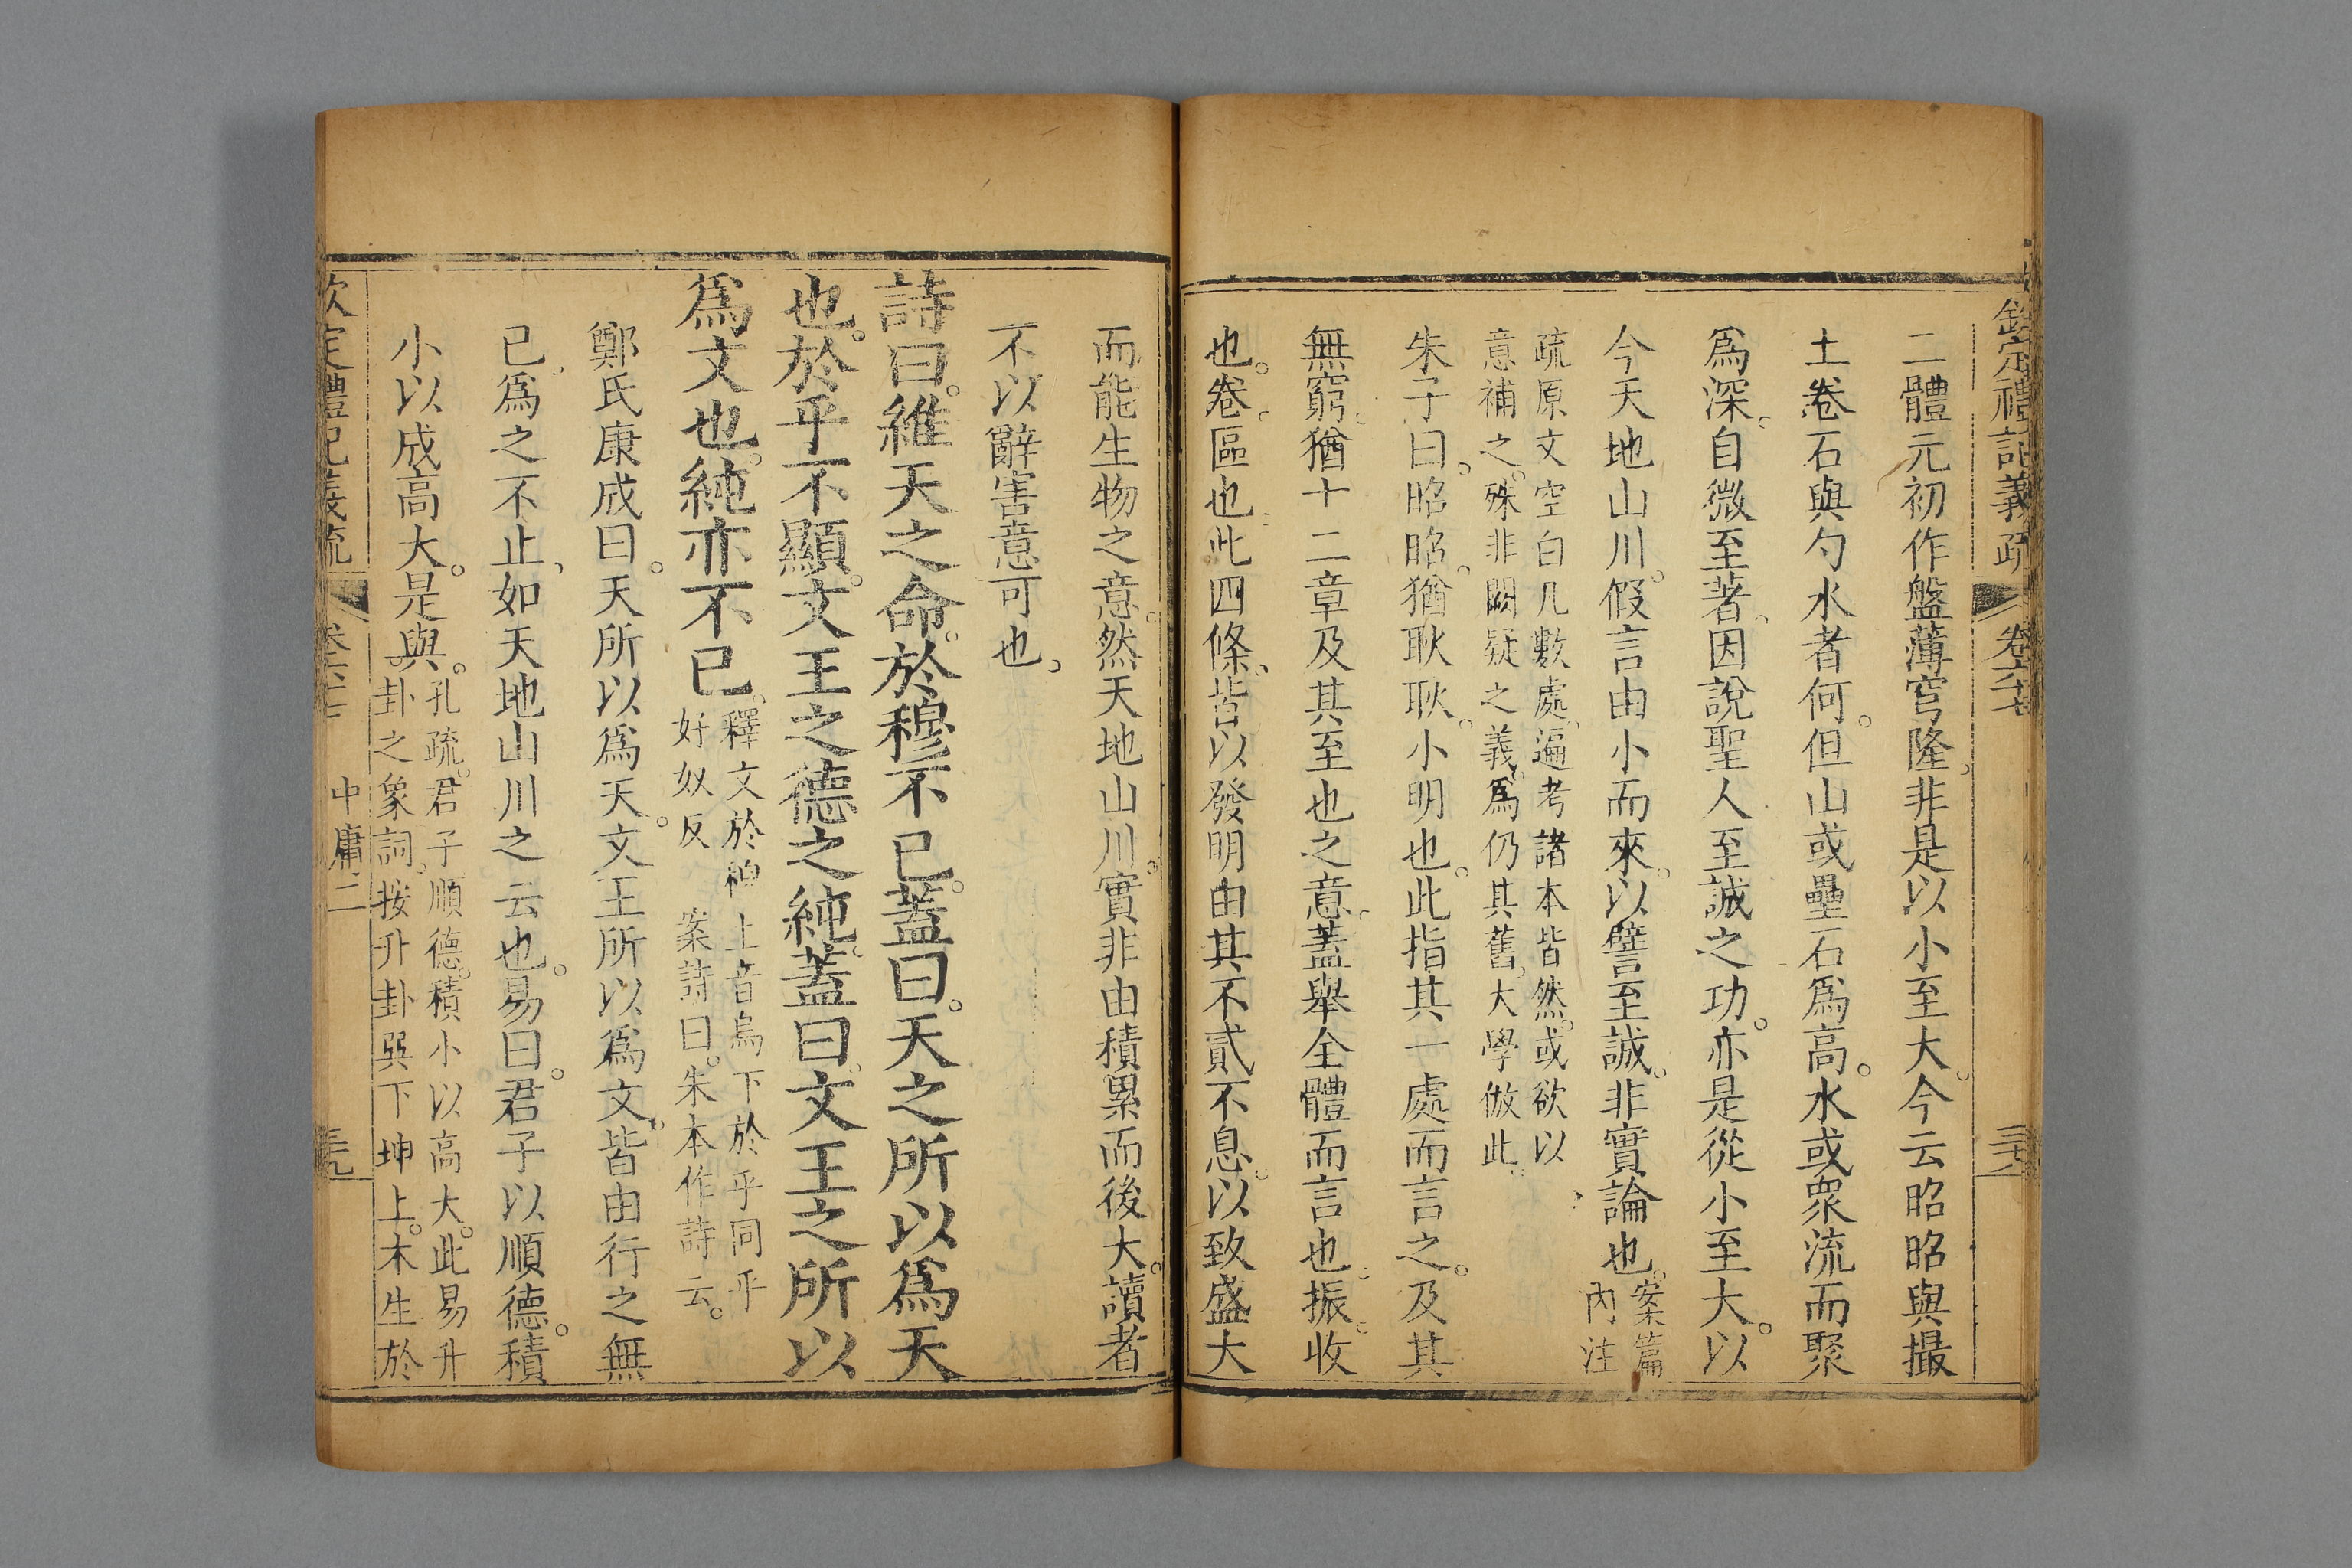 欽定禮記義疏 卷六十七
二體元初作盤薄穹隆非是以小至大。今云昭昭與撮
土卷石與勺水者何。但山或壘石爲高。水或衆流而聚
爲深。自微至著。因說聖人至誠之功。亦是從小至大。以
今天地山川。假言由小而來。以譬至誠。非實論也。案篇
內注
疏原文空白几數處。遍考諸本皆然。或欲以
意補之。殊非闕疑之義。爲仍其舊。大學倣此。
朱子曰。昭昭。猶耿耿。小明也。此指其一處而言之。及其
無窮。猶十二章及其至也之意。蓋舉全體而言也。振。收
也。卷。區也。此四條。皆以發明由其不貳不息。以致盛大
而能生物之意。然天地山川。實非由積累而後大。讀者
不以辭害意可也。
詩曰。維天之命。於穆不已。蓋曰。天之所以爲天
也。於乎不顯。文王之德之純。蓋曰。文王之所以
爲文也。純亦不已。釋文於穆 上音烏下於乎同乎
好奴反 案詩曰。朱本作詩云。
鄭氏康成曰。天所以爲天。文王所以爲文。皆由行之無
已。爲之不止。如天地山川之云也。易曰。君子以順德。積
小以成高大。是與。孔疏。君子順德。積小以高大。此易升
卦之象詞。按升卦巽下坤上。木生於
欽定禮記義疏 卷六十七 中庸二 三九